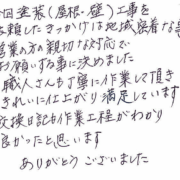 今回塗装(屋根・壁)工事を
依頼したきっかけは地域密着な
営業の方の親切な対応で
お願いする事に決めました
職人さんも丁寧に作業して頂き
きれいに仕上がり満足しています
交換日記も作業工程がわかり
良かったと思います
ありがとうございました